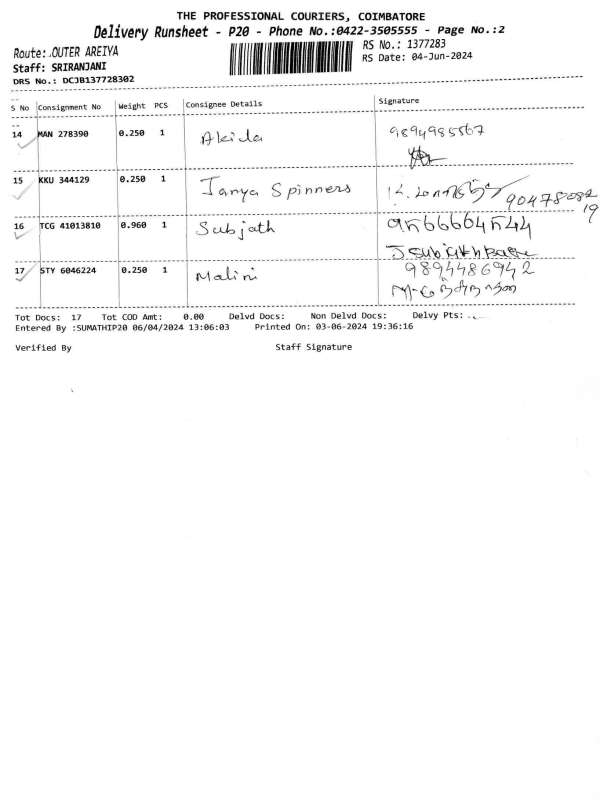 THE PROFESSIONAL COURIERS, COIMBATORE
Delivery Runsheet - P20 - Phone No.:0422-3505555 - Page No.:2
Route:.OUTER AREIYA
RS No.: 1377283
Staff: SRIRANJANI
RS Date: 04-Jun-2024
DRS No.: DCJB137728302
S No Consignment No Weight PCS Consignee Details Signature
14 MAN 278390 0.250 1 Akila 9894985567
15 KKU 344129 0.250 1 Janya Spinners 9047808219
16 TCG 41013810 0.960 1 Subjath 9566664544
17 STY 6046224 0.250 1 Malini 9894486942
Tot Docs: 17 Tot COD Amt: 0.00 Delvd Docs: Non Delvd Docs: Delvy Pts:
Entered By :SUMATHIP20 06/04/2024 13:06:03 Printed On: 03-06-2024 19:36:16
Verified By Staff Signature